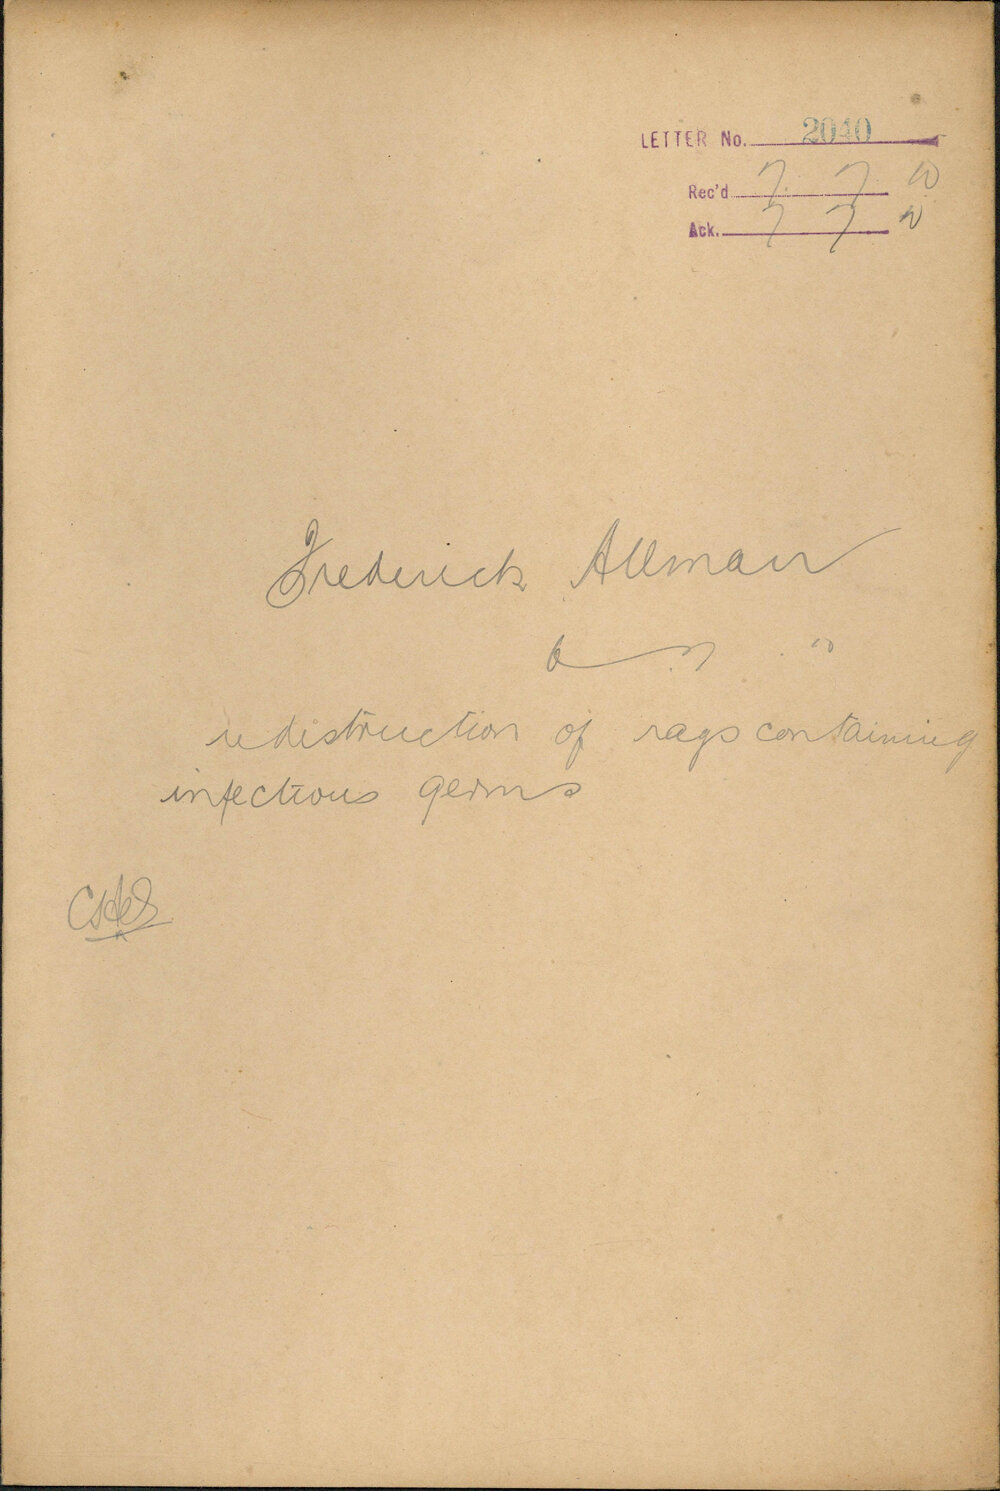 LETTER No. 2040
Rec'd 7 7
Ack. 7 7
Frederick Allman
re distruction of rags containing
infectious germs